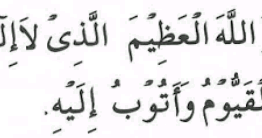 اللَّهَ الْعَظِيْمَ الَّذِىْ لَاَإِلَ
لْقَيُّوْمُ وَأَتُوْبُ إِلَيْهِ.